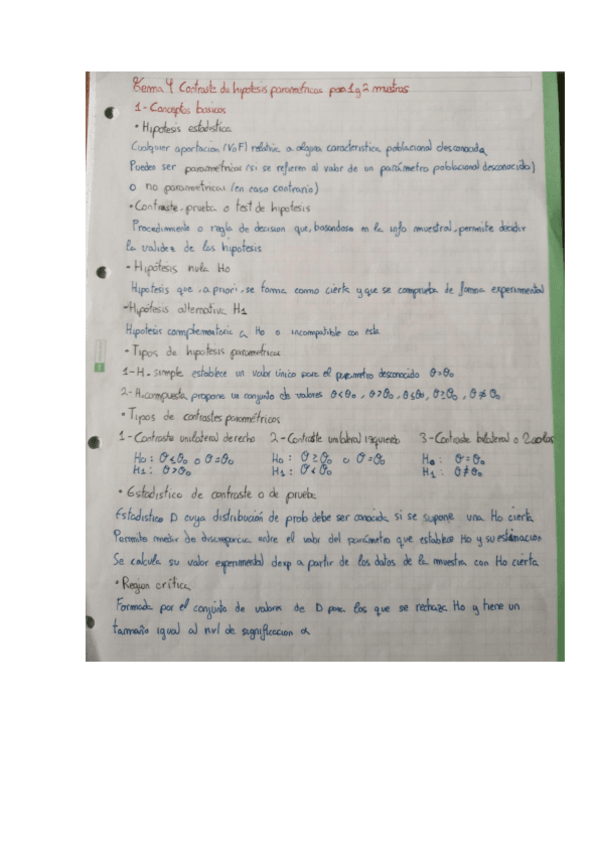 Tema 4 Contraste de hipotesis parametricos para 1 y 2 muestras
1- Conceptos basicos
• Hipotesis estadistica
Cualquier aportación (V o F) relativa a alguna caracteristica poblacional desconocida.
Pueden ser parametricas (si se refieren al valor de un parámetro poblacional desconocido)
o no parametricas (en caso contrario)
• Contraste, prueba o test de hipotesis
Procedimiento o regla de decision que, basandose en la info muestral, permite decidir
la validez de las hipotesis
- Hipótesis nula H₀
Hipotesis que, a priori, se toma como cierta y que se comprueba de forma experimental
- Hipótesis alternativa H₁
Hipotesis complementaria a H₀ o incompatible con esta
• Tipos de hipotesis parametricas
1- H. simple establece un valor único para el parametro desconocido θ=θ₀
2- H. compuesta, propone un conjunto de valores θ<θ₀, θ>θ₀, θ≤θ₀, θ≥θ₀, θ≠θ₀
• Tipos de contrastes parametricos
1- Contraste unilateral derecho 2- Contraste unilateral izquierdo 3- Contraste bilateral o 2 colas
H₀: θ≤θ₀ o θ=θ₀ H₀: θ≥θ₀ o θ=θ₀ H₀: θ=θ₀
H₁: θ>θ₀ H₁: θ<θ₀ H₁: θ≠θ₀
• Estadistico de contraste o de prueba
Estadistico D cuya distribución de prob debe ser conocida si se supone una H₀ cierta
Permite medir la discrepancia entre el valor del parámetro que establece H₀ y su estimación
Se calcula su valor experimental dexp a partir de los datos de la muestra con H₀ cierta
• Region crítica
Formada por el conjunto de valores de D para los que se rechaza H₀ y tiene un
tamaño igual al nvl de significacion α